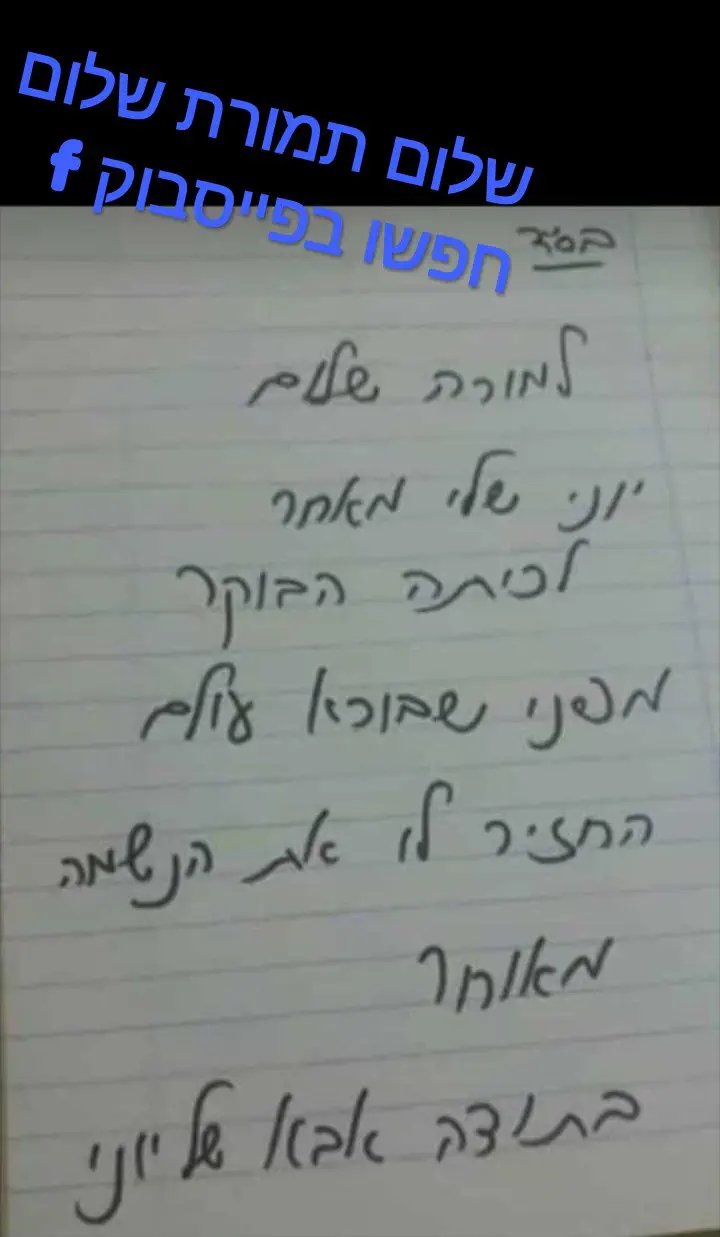 שלום תמורת שלום
חפשו בפייסבוק f
בס״ד
למורה שלום
יוני שלי מאחר
לכיתה הבוקר
מפני שבורא עולם
החזיר לו את הנשמה
מאוחר
בתודה אבא של יוני